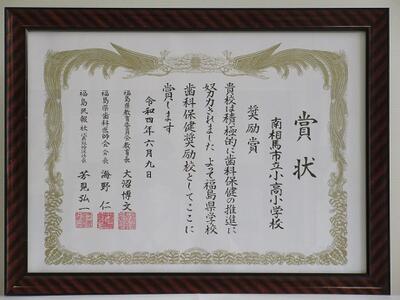 賞状
南相馬市立小高小学校
奨励賞
貴校は積極的に歯科保健の推進に
努力されました よって福島県学校
歯科保健奨励校としてここに
賞します
令和四年六月九日
福島県教育委員会教育長 大沼博文
福島県歯科医師会会長 海野仁
福島民報社代表取締役社長 芳見弘一